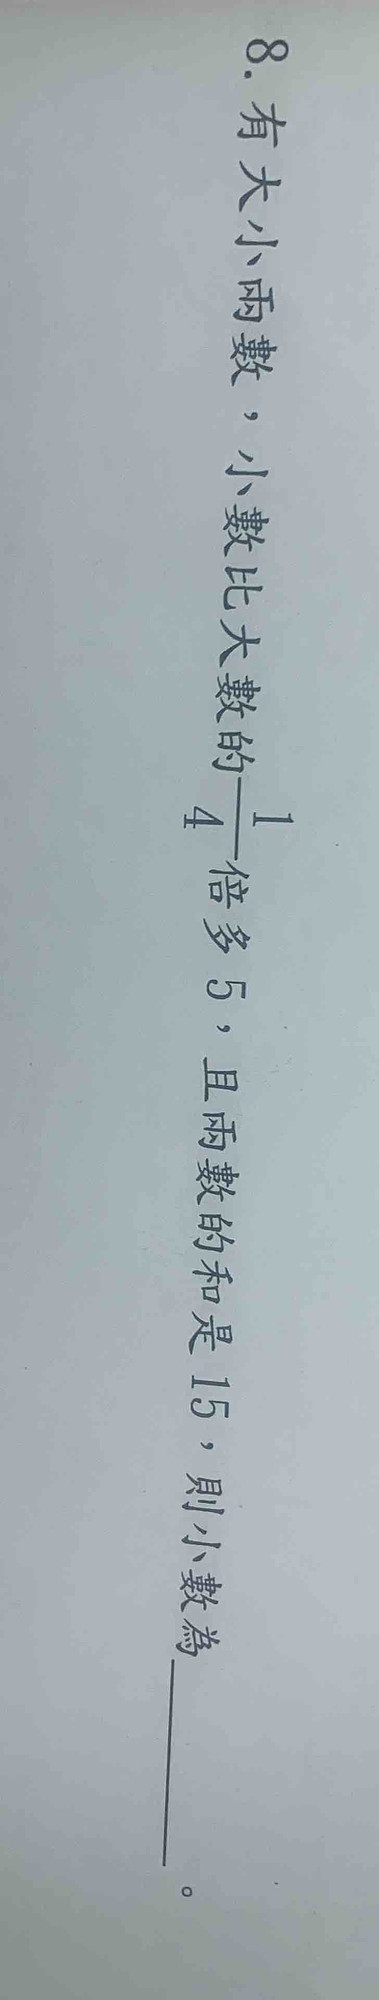 8. 有大小兩數，小數比大數的$\frac{1}{4}$倍多5，且兩數的和是15，則小數為______。